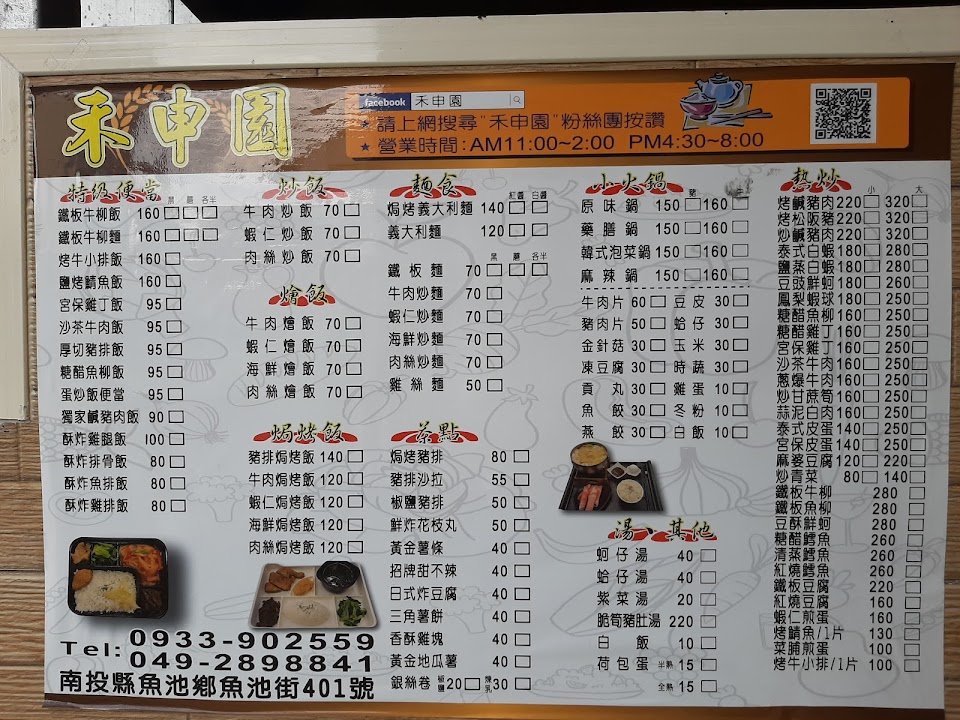 禾申園
facebook 禾申園
★請上網搜尋"禾申園"粉絲團按讚
★營業時間:AM11:00~2:00 PM4:30~8:00
特級便當
黑 蘑 各半
鐵板牛柳飯 160
鐵板牛柳麵 160
烤牛小排飯 160
鹽烤鯖魚飯 160
宮保雞丁飯 95
沙茶牛肉飯 95
厚切豬排飯 95
糖醋魚柳飯 95
蛋炒飯便當 95
獨家鹹豬肉飯 90
酥炸雞腿飯 100
酥炸排骨飯 80
酥炸魚排飯 80
酥炸雞排飯 80
炒飯
牛肉炒飯 70
蝦仁炒飯 70
肉絲炒飯 70
燴飯
牛肉燴飯 70
蝦仁燴飯 70
海鮮燴飯 70
肉絲燴飯 70
焗烤飯
豬排焗烤飯 140
牛肉焗烤飯 120
蝦仁焗烤飯 120
海鮮焗烤飯 120
肉絲焗烤飯 120
麵食
紅醬 白醬
焗烤義大利麵 140
義大利麵 120
黑 蘑 各半
鐵板麵 70
牛肉炒麵 70
蝦仁炒麵 70
海鮮炒麵 70
肉絲炒麵 70
雞絲麵 50
茶點
焗烤豬排 80
豬排沙拉 55
椒鹽豬排 50
鮮炸花枝丸 50
黃金薯條 40
招牌甜不辣 40
日式炸豆腐 40
三角薯餅 40
香酥雞塊 40
黃金地瓜薯 40
銀絲卷 椒鹽 20 煉乳 30
小火鍋
豬 牛
原味鍋 150 160
藥膳鍋 150 160
韓式泡菜鍋 150 160
麻辣鍋 150 160
牛肉片 60 豆皮 30
豬肉片 50 蛤仔 30
金針菇 30 玉米 30
凍豆腐 30 時蔬 30
貢丸 30 雞蛋 10
魚餃 30 冬粉 10
燕餃 30 白飯 10
湯、其他
蚵仔湯 40
蛤仔湯 40
紫菜湯 20
脆筍豬肚湯 220
白飯 10
荷包蛋 半熟 15
全熟 15
熱炒
小 大
烤鹹豬肉 220 320
烤松阪豬 220 320
炒鹹豬肉 220 320
泰式白蝦 180 280
鹽蒸白蝦 180 280
豆豉鮮蚵 180 280
鳳梨蝦球 180 250
糖醋魚柳 160 250
糖醋雞丁 160 250
宮保雞丁 160 250
沙茶牛肉 160 250
蔥爆牛肉 160 250
炒甘蔗筍 160 250
蒜泥白肉 160 250
泰式皮蛋 140 250
宮保皮蛋 140 250
麻婆豆腐 120 220
炒青菜 80 140
鐵板牛柳 280
鐵板魚柳 280
豆酥鮮蚵 280
糖醋鱈魚 260
清蒸鱈魚 260
紅燒鱈魚 260
鐵板豆腐 220
紅燒豆腐 160
蝦仁煎蛋 160
烤鯖魚/1片 130
菜脯煎蛋 100
烤牛小排/1片 100
Tel: 0933-902559
049-2898841
南投縣魚池鄉魚池街401號